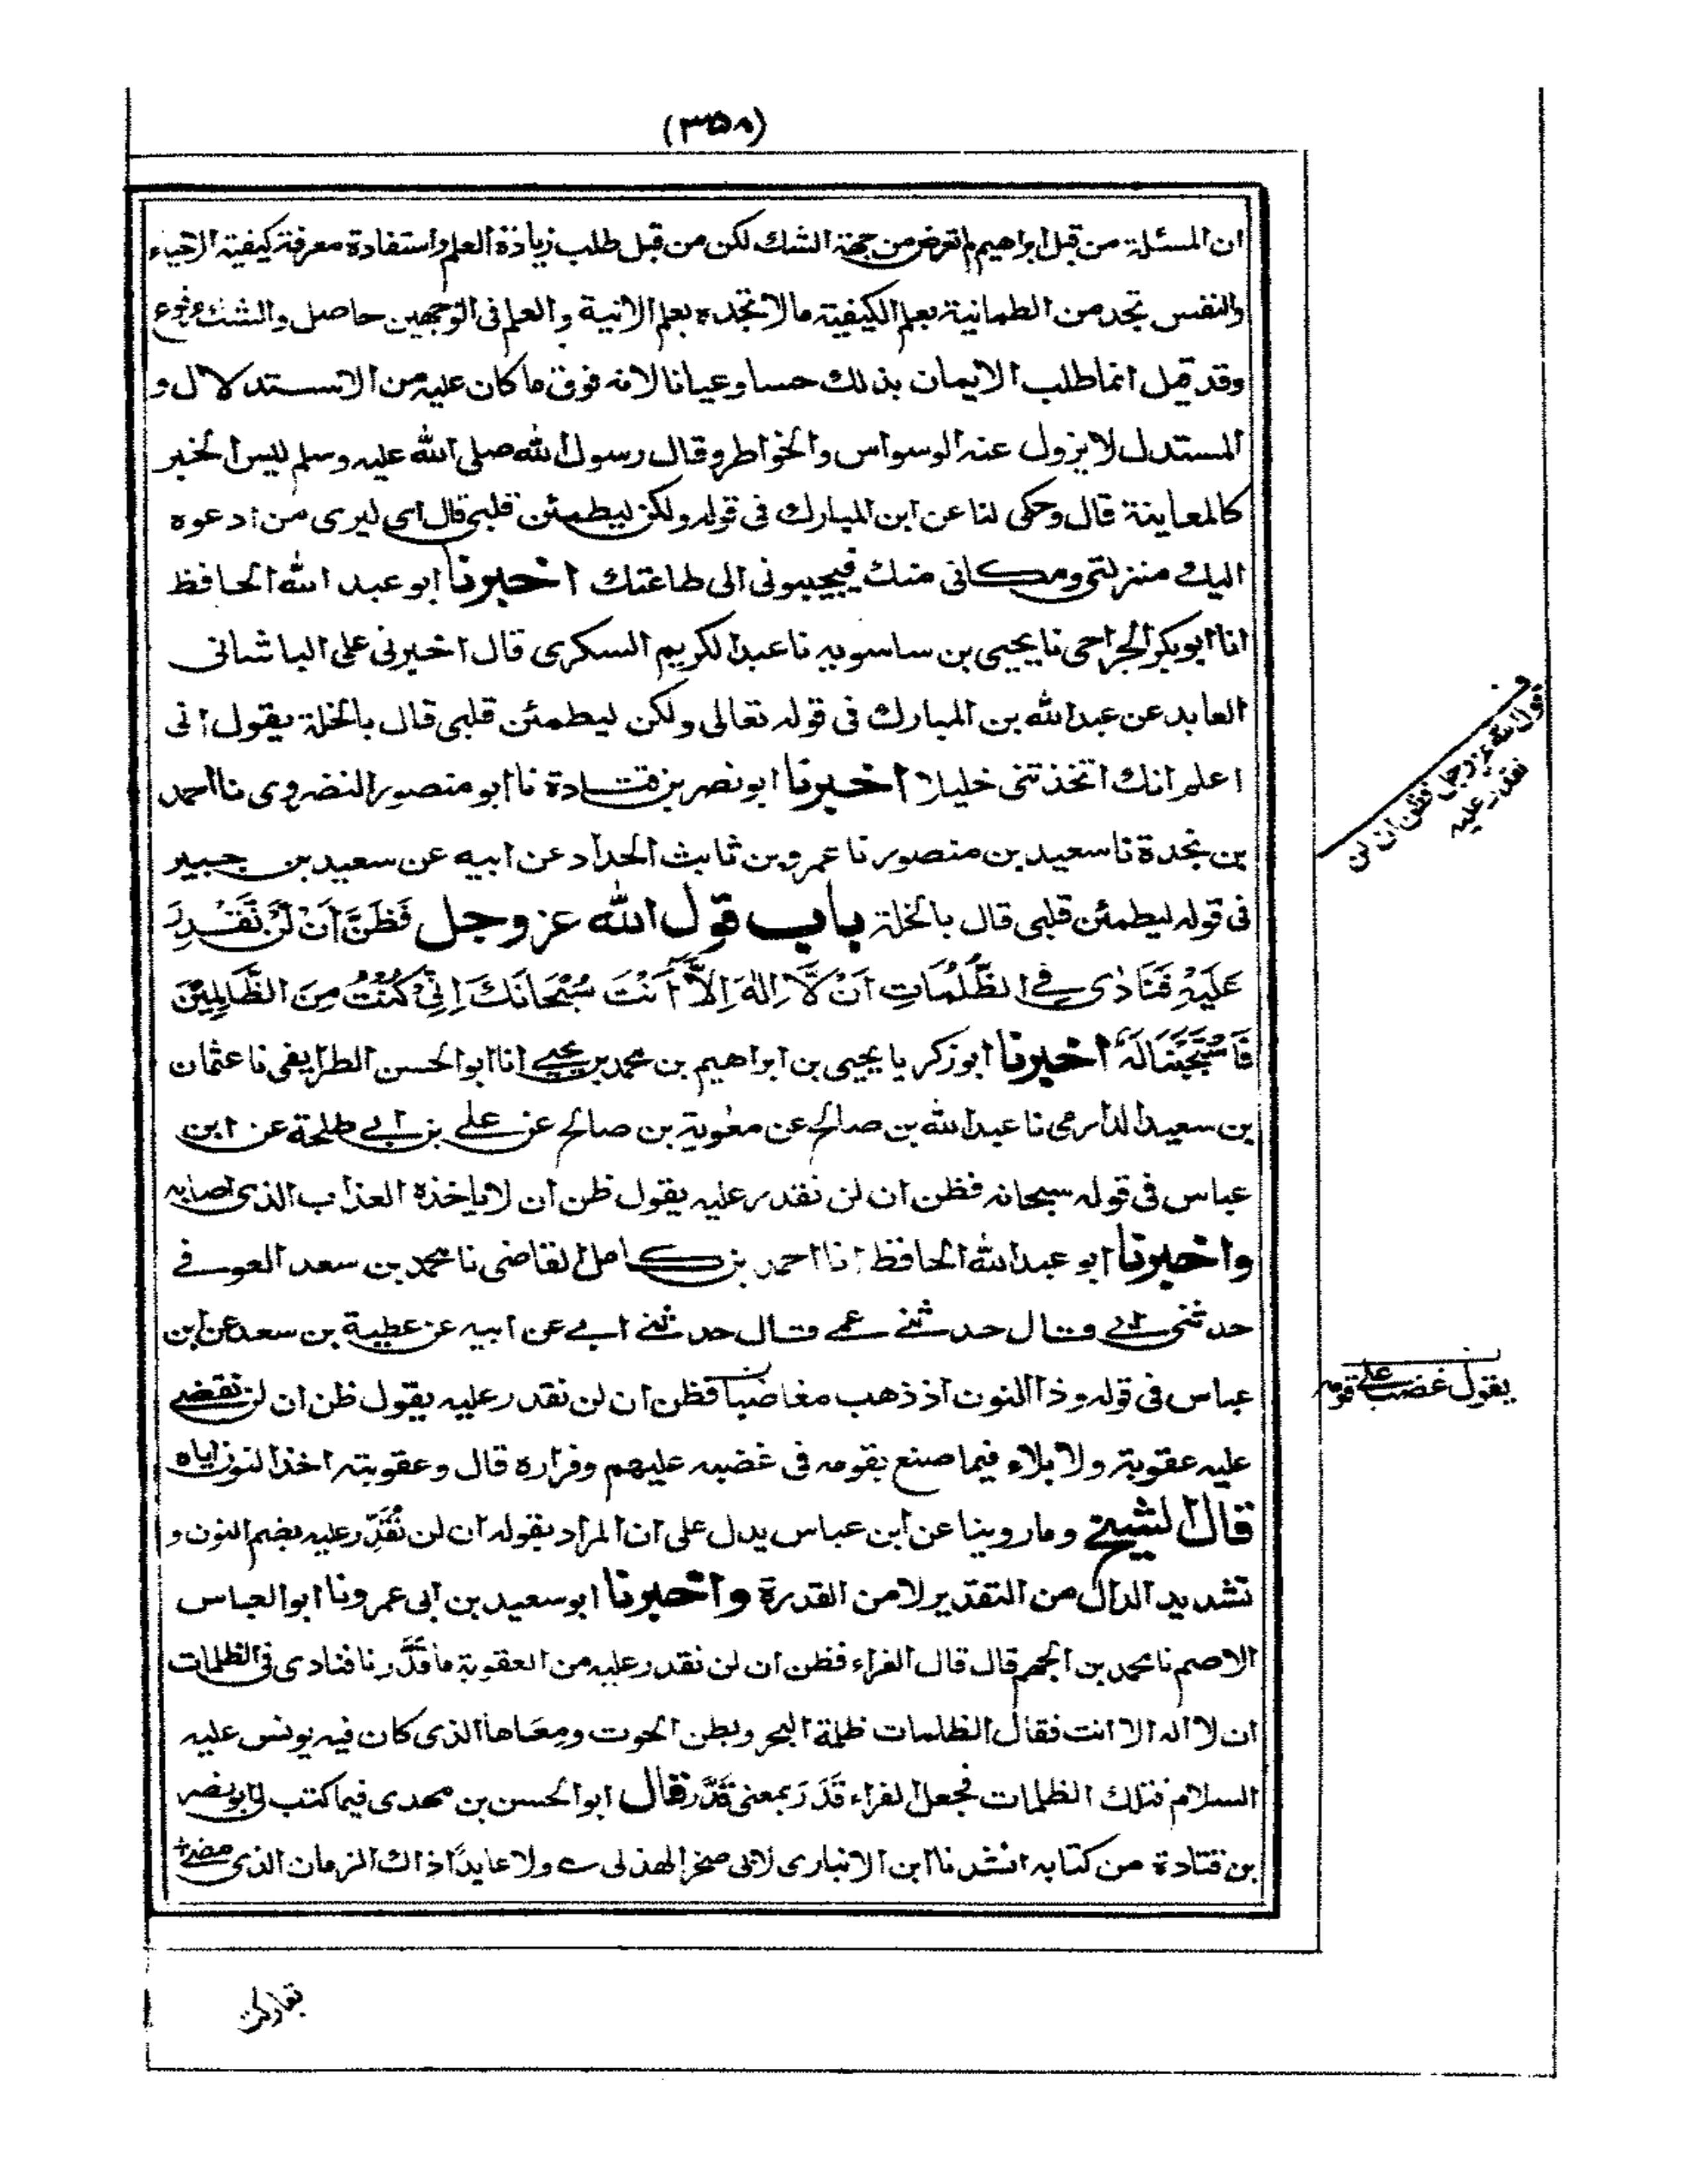 (۳۵۸)
ان المسئلة من قبل ابراهيم لم تعرض من جهة الشك لكن من قبل طلب زيادة العلم واستفادة معرفة كيفية الاحياء
والنفس تجد من الطمانية بعلم الكيفية مالا تجده بعلم الانية والعلم فى الوجهين حاصل والشك مرفوع
وقد قيل انما طلب الايمان بذلك حسا وعيانا لانه فوق ما كان عليه من الاستدلال و
المستدل لا يزول عنه الوسواس والخواطر وقال رسول الله صلى الله عليه وسلم ليس الخبر
كالمعاينة قال وحكى لنا عن ابن المبارك فى قوله ولكن ليطمئن قلبى قال اى ليرى من ادعوه
اليك منزلتى ومكانى منك فيجيبونى الى طاعتك اخبرنا ابو عبد الله الحافظ
انا ابوبكر الجراحى نا يحيى بن ساسويه نا عبد الكريم السكرى قال اخبرنى على الباشانى
العابد عن عبد الله بن المبارك فى قوله تعالى ولكن ليطمئن قلبى قال بالخلة يقول انى
اعلم انك اتخذتنى خليلا اخبرنا ابو نصر بن قتادة نا ابو منصور النضروى نا احمد
بن نجدة نا سعيد بن منصور نا عمرو بن ثابت الحداد عن ابيه عن سعيد بن جبير
فى قوله ليطمئن قلبى قال بالخلة باب قول الله عز وجل فَظَنَّ اَنْ لَّنْ نَّقْدِرَ
عَلَيْهِ فَنَادٰى فِى الظُّلُمَاتِ اَنْ لَّا اِلٰهَ اِلَّا اَنْتَ سُبْحَانَكَ اِنِّىْ كُنْتُ مِنَ الظَّالِمِيْنَ
فَاسْتَجَبْنَا لَهٗ اخبرنا ابو زكريا يحيى بن ابراهيم بن محمد بن يحيى انا ابو الحسن الطرايفى نا عثمان
بن سعيد الدارمى نا عبد الله بن صالح عن معٰوية بن صالح عن على بن ابى طلحة عن ابن
عباس فى قوله سبحانه فظن ان لن نقدر عليه يقول ظن ان لا ياخذه العذاب الذى اصابه
واخبرنا ابو عبد الله الحافظ انا احمد بن كامل القاضى نا محمد بن سعد العوفى
حدثنى ابى قال حدثنى عمى قال حدثنى ابى عن ابيه عن عطية بن سعد عن ابن
عباس فى قوله وذا النون اذ ذهب مغاضبا فظن ان لن نقدر عليه يقول ظن ان لن نقضى
عليه عقوبة ولا بلاء فيما صنع بقومه فى غضبه عليهم وفراره قال وعقوبته اخذ النون اياه
قال الشيخ وما روينا عن ابن عباس يدل على ان المراد بقوله ان لن نُقَدِّر عليه بضم النون و
تشديد الدال من التقدير لا من القدرة واخبرنا ابو سعيد بن ابى عمرو نا ابو العباس
الاصم نا محمد بن الجهم قال قال الفراء فظن ان لن نقدر عليه من العقوبة ما قَدَّرنا فنادى فى الظلمات
ان لا اله الا انت فقال الظلمات ظلمة البحر وبطن الحوت ومِعَاها الذى كان فيه يونس عليه
السلام فتلك الظلمات فجعل الفراء قَدَرَ بمعنى قَدَّر فقال ابو الحسن بن مهدى فيما كتب لى ابو نصر
بن قتادة من كتابه انشدنا ابن الانبارى لابى صخر الهذلى ؎ ولا عايدًا ذاك الزمان الذى مضى
ف
قول الله عز وجل فظن ان لن
نقدر عليه
يقول غضب على قومه